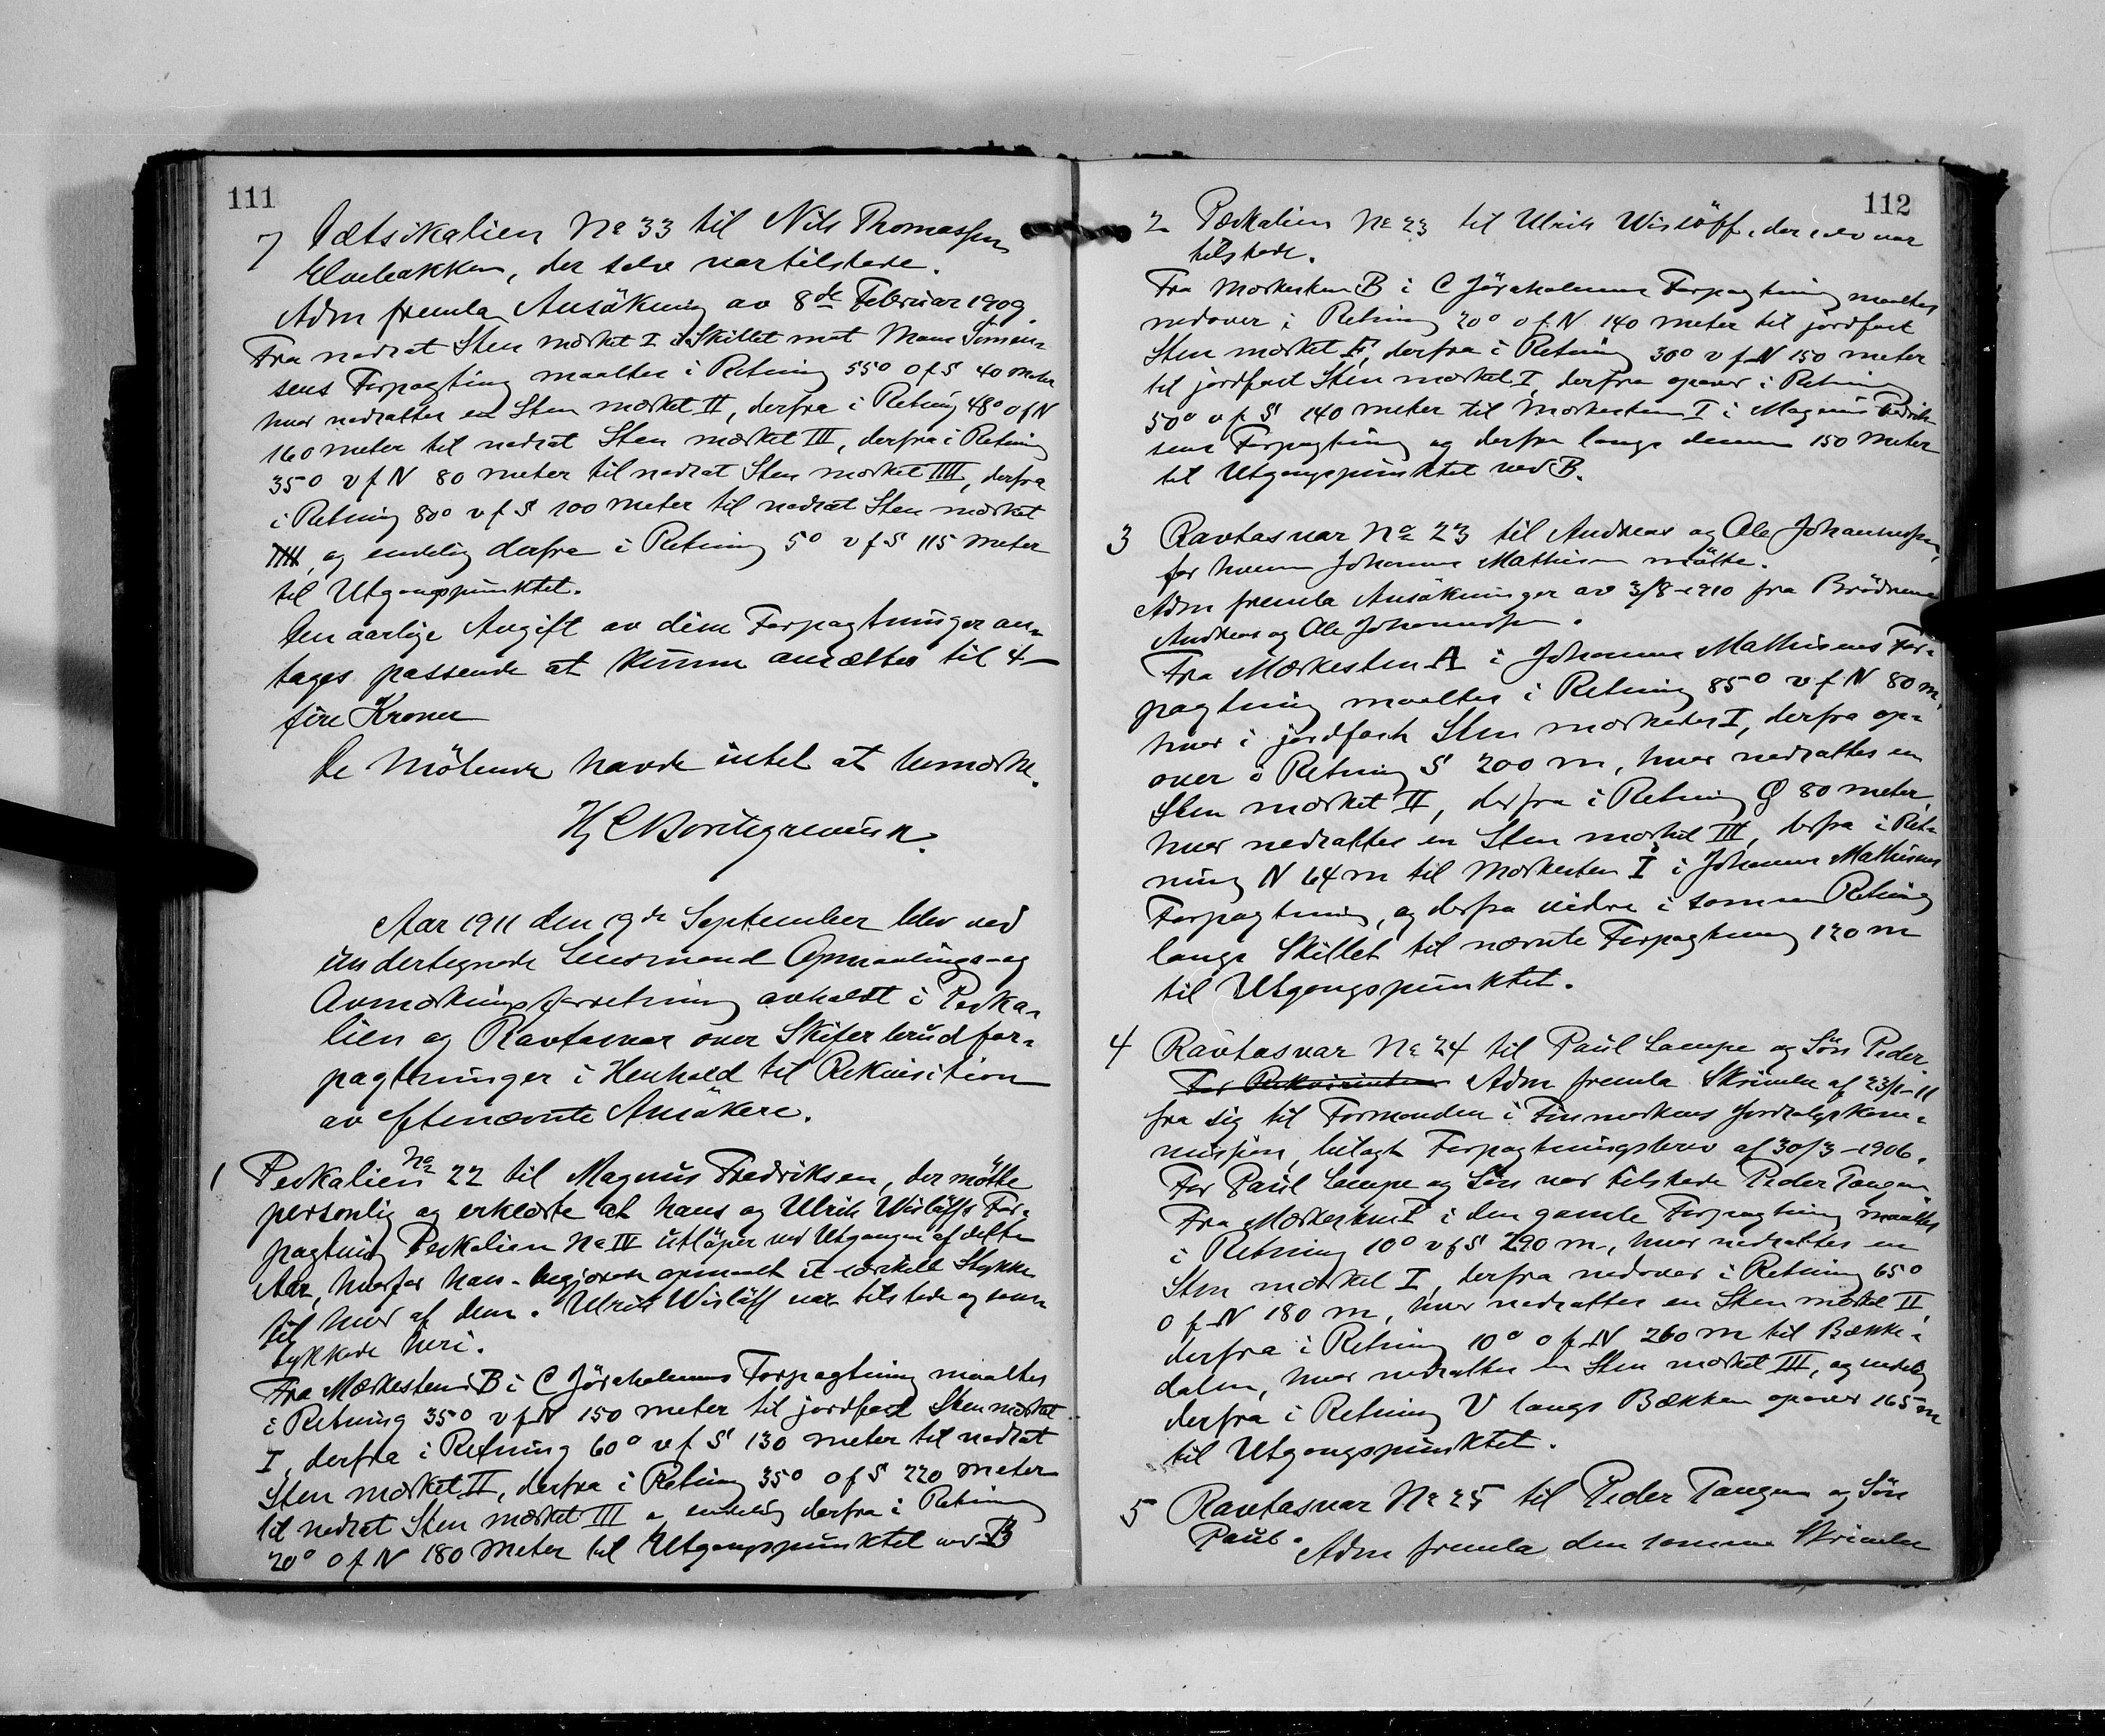 111
7 Jætsikalien No 33 til Nils Thomassen
Elvebakken, der selv var tilstede.
Adm fremla Ansökning av 8de Februar 1909.
Fra nedsat Sten mærket I i Skillet mot Mons Simon-
sens Forpagting maaltes i Retning 55° o f S 40 meter
hvor nedsattes en Sten mærket II, derfra i Retning 48° o f N
160 meter til nedsat Sten mærket III, derfra i Retning
35° v f N 80 meter til nedsat Sten mærket IIII, derfra
i Retning 80° v f S 100 meter til nedsat Sten mærket
IIIII, og endelig derfra i Retning 5° v f S 115 meter
til Utgangspunktet.
Den aarlige Avgift av disse Forpagtninger an-
tages passende at kunne ansættes til 4 —
fire Kroner
De Mötende havde intet at bemærke.
Hj C Borchgrevink.
Aar 1911 den 19de September blev ved
undertegnede Lensmand Opmaalings- og
Avmærkningsforretning avholdt i Peska-
lien og Ravtasvar over Skiferbrudfor-
pagtninger i Henhold til Rekvisition
av eftenævnte Ansökere.
1 Peskalien No 22 til Magnus Fredriksen, der mötte
personlig og erklærte at hans og Ulrik Wislöffs For-
pagtning Peskalien No IV utlöper ved Utgangen af dette
Aar, hvorfor han begjærede opmaalt et særskilt Stykke
til hver af dem. Ulrik Wislöff var tilstede og sam-
tykkede heri.
Fra Mærkesten B i C Jöraholmens Forpagtning maaltes
i Retning 35° v f N 150 meter til jordfast Sten mærket
I, derfra i Retning 60° v f S 130 meter til nedsat
Sten mærket II, derfra i Retning 35° o f S 220 meter
til nedsat Sten mærket III og endelig derfra i Retning
20° o f N 180 meter til Utgangspunktet ved B
112
2 Peskalien No 23 til Ulrik Wislöff, der selv var
tilstede.
Fra Mærkesten B i C Jöraholmens Forpagtning maaltes
nedover i Retning 20° o f N 140 meter til jordfast
Sten mærket F, derfra i Retning 30° v f N 150 meter
til jordfast Sten mærket I, derfra opover i Retning
50° v f S 140 meter til Mærkesten I i Magnus Fredrik-
sens Forpagtning og derfra langs denne 150 meter
til Utgangspunktet ved B.
3 Ravtasvar No 23 til Andreas og Ole Johannessen,
for hvem Johannes Mathisen mötte.
Adm fremla Ansökninger av 3/8-1910 fra Brödrene
Andreas og Ole Johannessen.
Fra Mærkesten A i Johannes Mathisens For-
pagtning maaltes i Retning 85° v f N 80 m,
hvor i jordfast Sten mærkedes I, derfra op-
over i Retning S 200 m, hvor nedsattes en
Sten mærket II, derfra i Retning Ø 80 meter,
hvor nedsattes en Sten mærket III, derfra i Ret-
ning N 64 m til Mærkesten I i Johannes Mathisens
Forpagtning, og derfra videre i samme Retning
langs Skillet til nævnte Forpagtning 120 m
til Utgangspunktet.
4 Ravtasvar No 24 til Paul Lampe og Sön Peder
For Rekvirenten Adm fremla Skrivelse af 23/1-11
fra sig til Formanden i Finmarkens Jordsalgskom-
mission, bilagt Forpagtningsbrev af 30/3-1906.
For Paul Lampe og Sön var tilstede Peder Tangen
Fra Mærkesten I i den gamle Forpagtning maaltes
i Retning 10° v f S 290 m, hvor nedsattes en
Sten mærket I, derfra nedover i Retning 65°
o f N 180 m, hvor nedsattes en Sten mærket II
derfra i Retning 10° o f N 260 m til Bække-
dalen, hvor nedsattes en Sten mærket III, og endelig
derfra i Retning V langs Bækken opover 165 m
til Utgangspunktet.
5 Ravtasvar No 25 til Peder Tangen og Sön
Paul. Adm fremla den samme Skrivelse